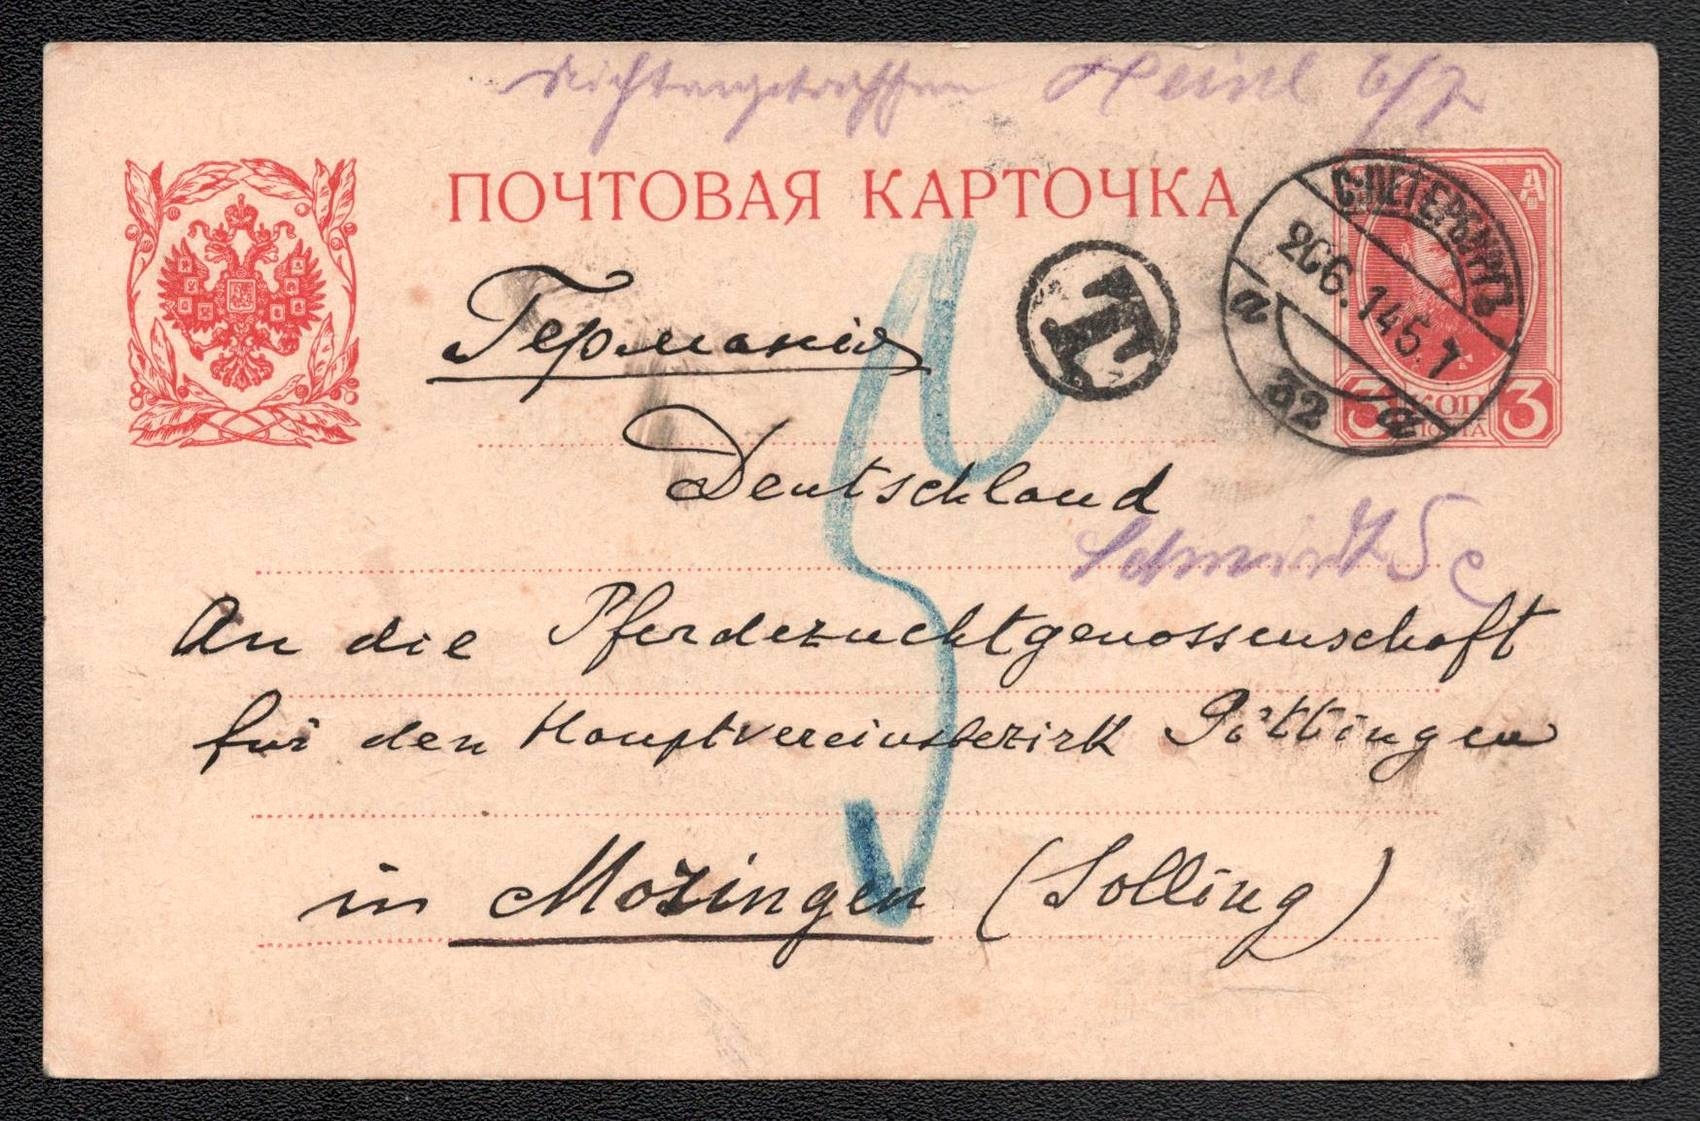 Nicht angetroffen Heinl 6/7
ПОЧТОВАЯ КАРТОЧКА
С.ПЕТЕРБУРГЪ
26 6.14 5. 7
a 32 a
T
3 КОП 3
Германія
Deutschland
5
Schmidt
An die Pferdezuchtgenossenschaft
für den Hauptvereinsbezirk Göttingen
in Mozingen (Solling)